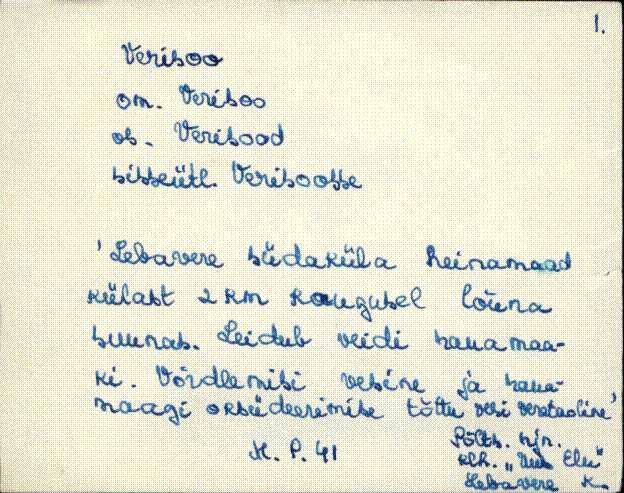 1.
Verisoo
om. Verisoo
os. Verisood
sisseütl. Verisoosse
'Lebavere südaküla heinamaad
külast 2 km kaugusel lõuna
suunas. Leidub veidi rauamaa-
ki. Võrdlemisi vesine ja raua-
maagi oksüdeerimise tõttu vesi veretaoline'
M. P. 41
Põlts. rjn.
klh. „Uus Elu"
Lebavere k.